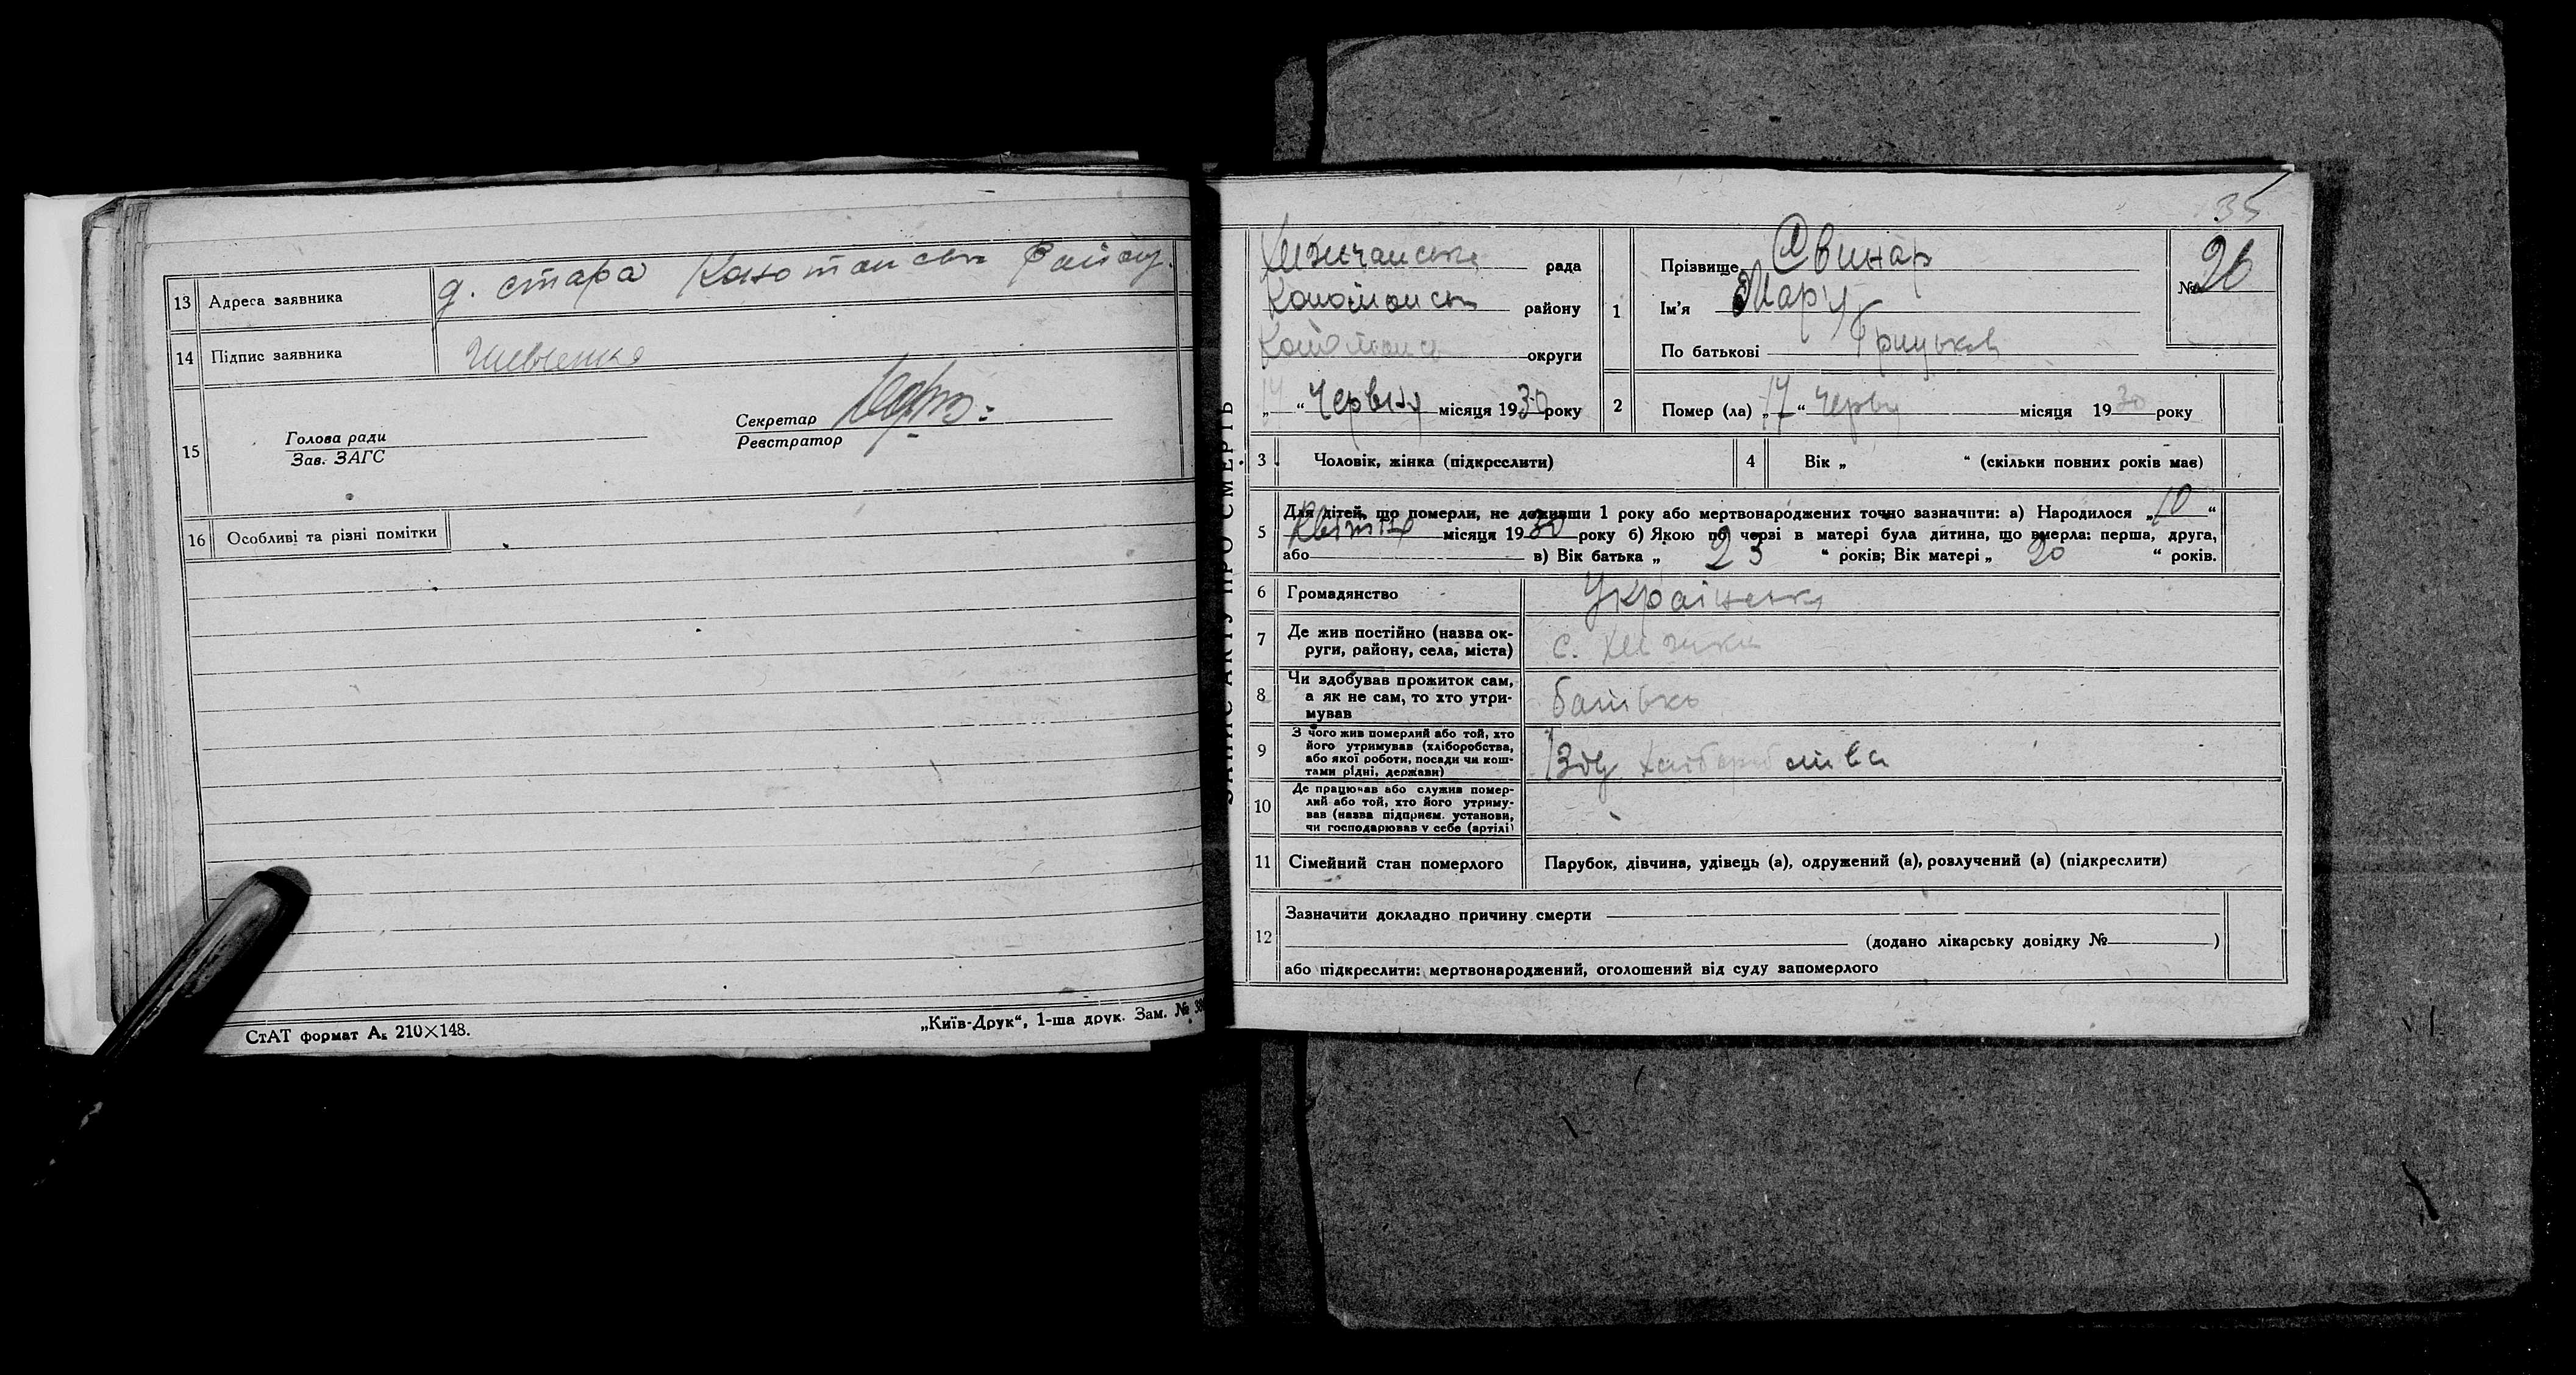 13 Адреса заявника д. стара Конотопськ Району.
14 Підпис заявника Шевченко
15 Голова ради
Зав. ЗАГС
Секретар
Реєстратор
16 Особливі та різні помітки
СтАТ формат А₅ 210×148.
„Київ-Друк“, 1-ша друк. Зам. №
35
ЗАПИС АКТУ ПРО СМЕРТЬ
рада
Конотопськ району
округи
„14“ Червня місяця 1930 року
1 Прізвище Свинар
Ім'я Мар'я
По батькові Грицьков
№ 26
2 Помер (ла) „17“ Червня місяця 1930 року
3 Чоловік, жінка (підкреслити)
4 Вік „ “ (скільки повних років має)
5 Для дітей, що померли, не доживши 1 року або мертвонароджених точно зазначити: а) Народилося „10“
Квітня місяця 1930 року б) Якою по черзі в матері була дитина, що вмерла: перша, друга,
або в) Вік батька „ 23 “ років; Вік матері „ 20 “ років.
6 Громадянство Українська
7 Де жив постійно (назва ок-
руги, району, села, міста) с.
8 Чи здобував прожиток сам,
а як не сам, то хто утри-
мував батько
9 З чого жив померлий або той, хто
його утримував (хліборобства,
або якої роботи, посади чи кош-
тами рідні, держави) Від хліборобства
10 Де працював або служив помер-
лий або той, хто його утриму-
вав (назва підприєм. установи,
чи господарював у себе (артілі)
11 Сімейний стан померлого Парубок, дівчина, удівець (а), одружений (а), розлучений (а) (підкреслити)
12 Зазначити докладно причину смерти
(додано лікарську довідку № )
або підкреслити: мертвонароджений, оголошений від суду запомерлого